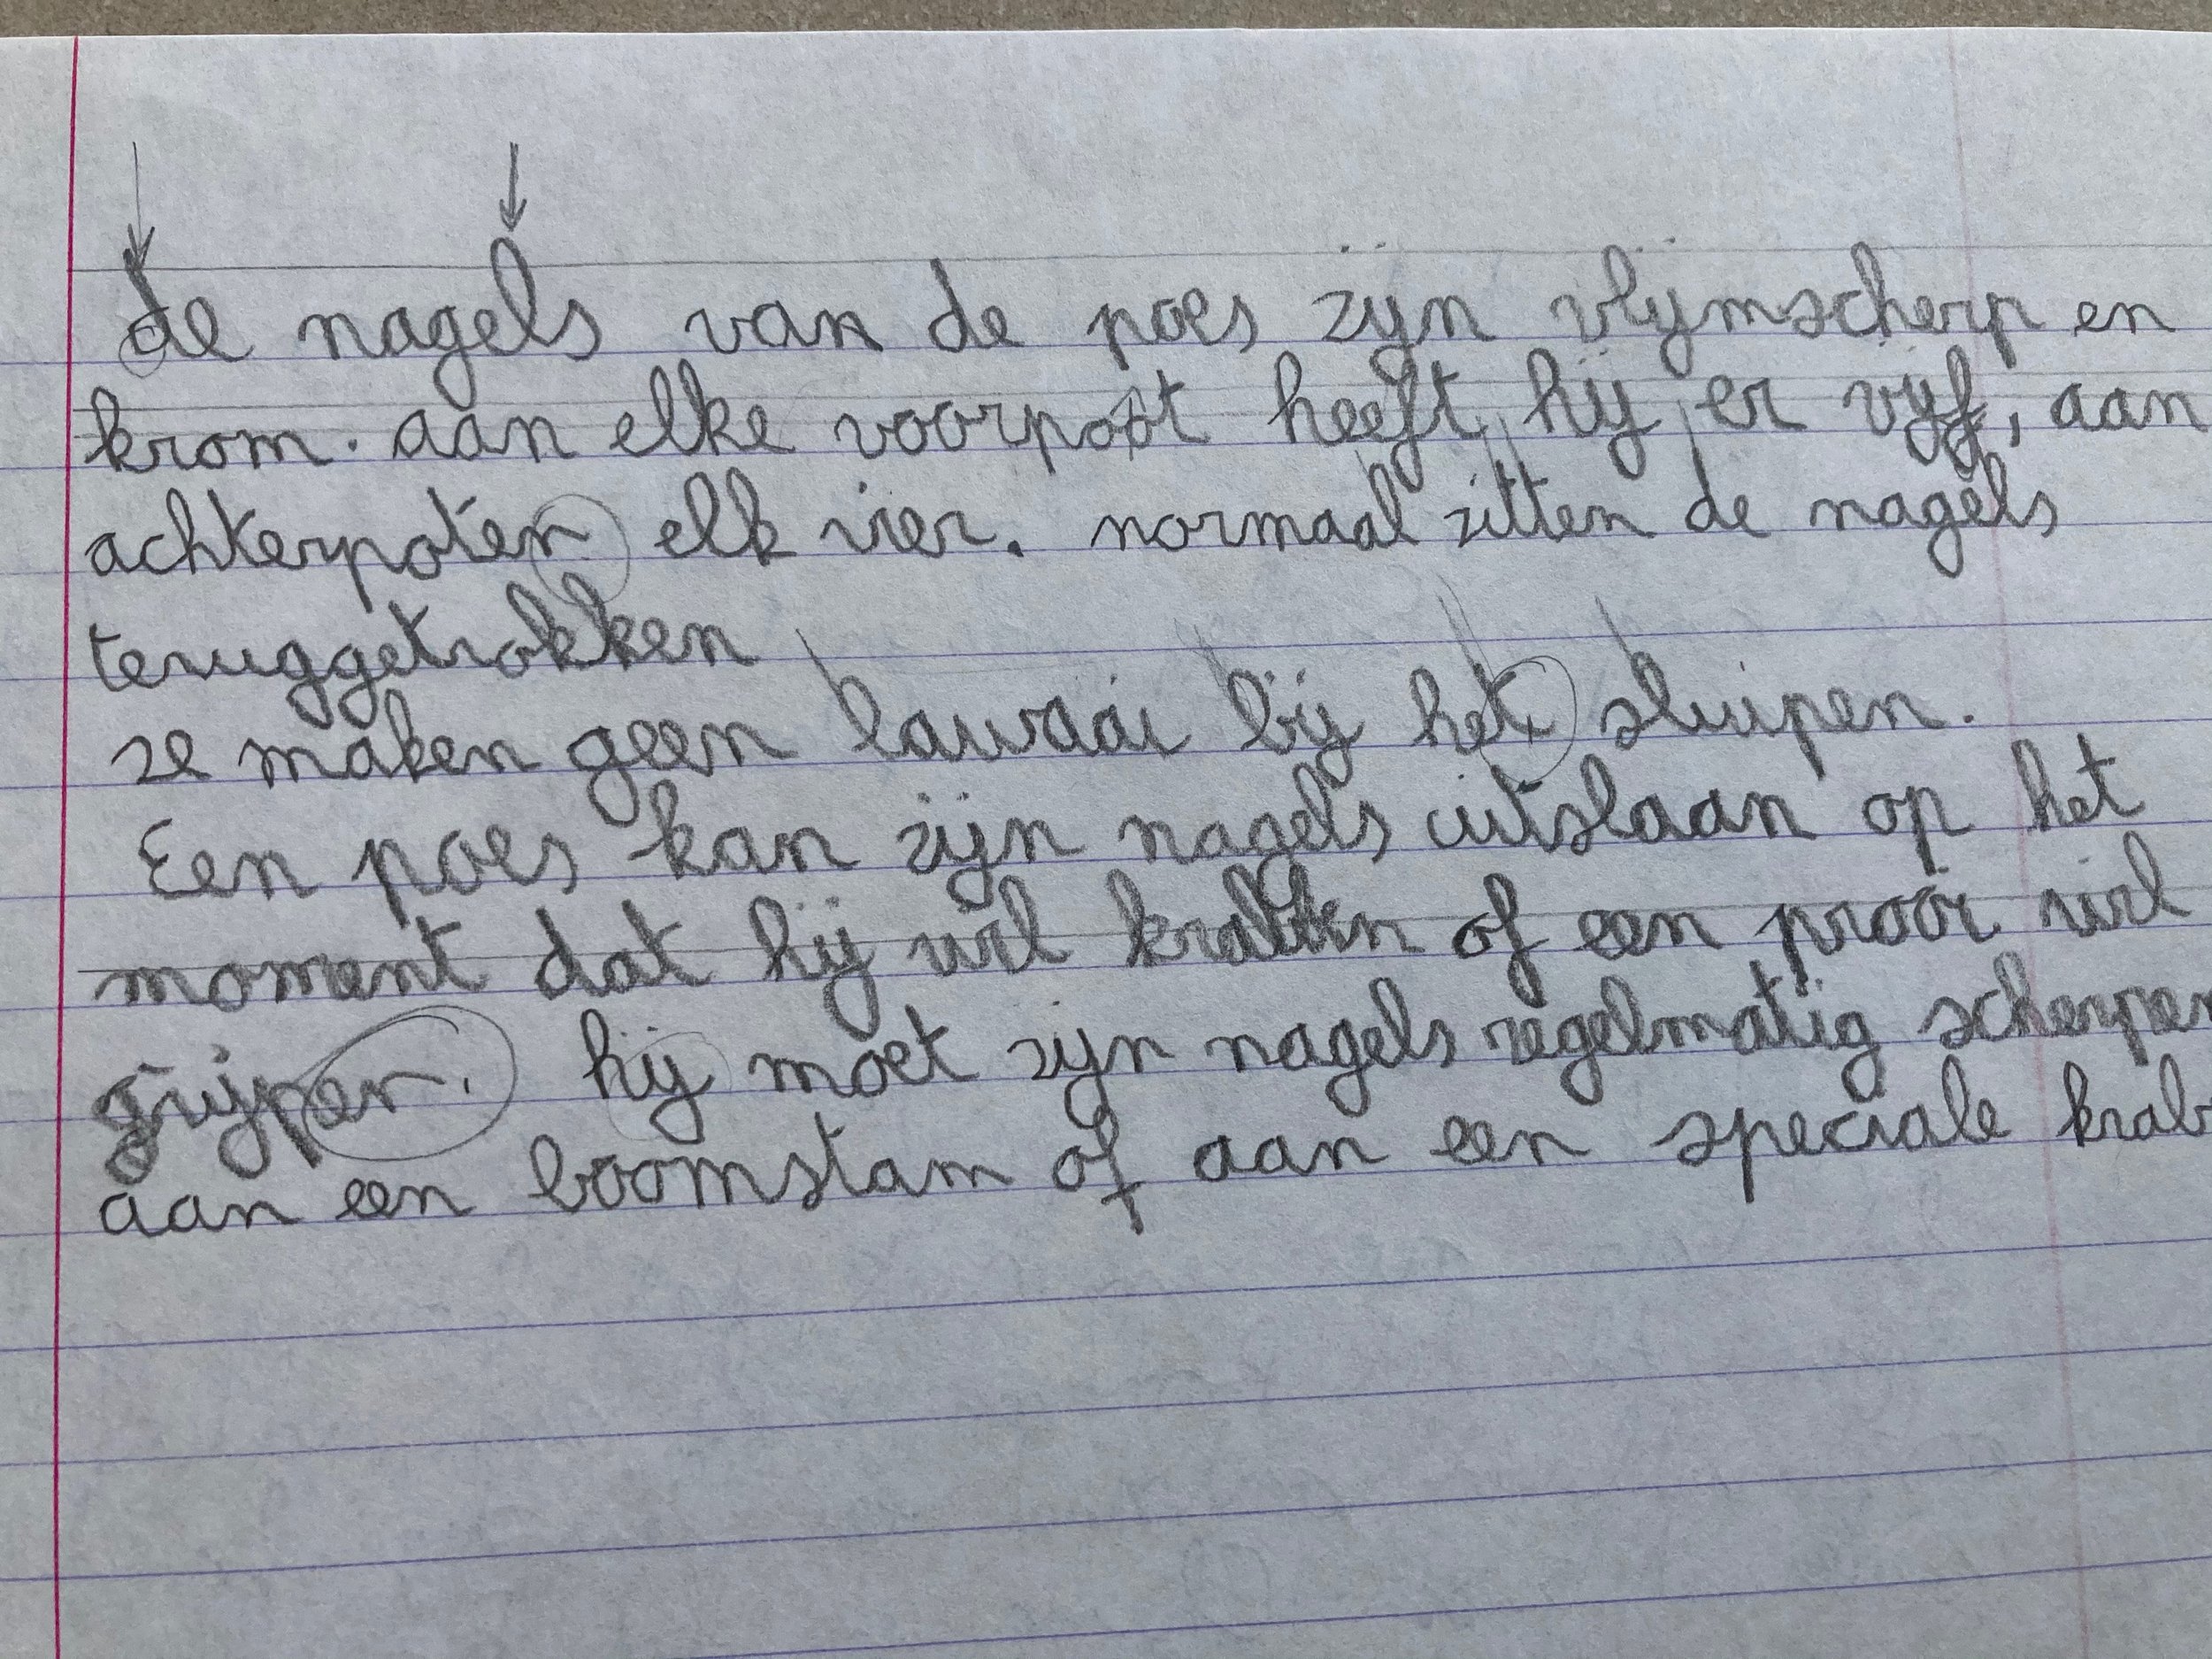 de nagels van de poes zijn vlijmscherp en
krom. aan elke voorpoot heeft hij er vijf, aan
achterpoten elk vier. normaal zitten de nagels
teruggetrokken
ze maken geen lawaai bij het sluipen.
Een poes kan zijn nagels uitslaan op het
moment dat hij wil of een prooi wil
grijpen. hij moet zijn nagels regelmatig scherpen
aan een boomstam of aan een speciale krab